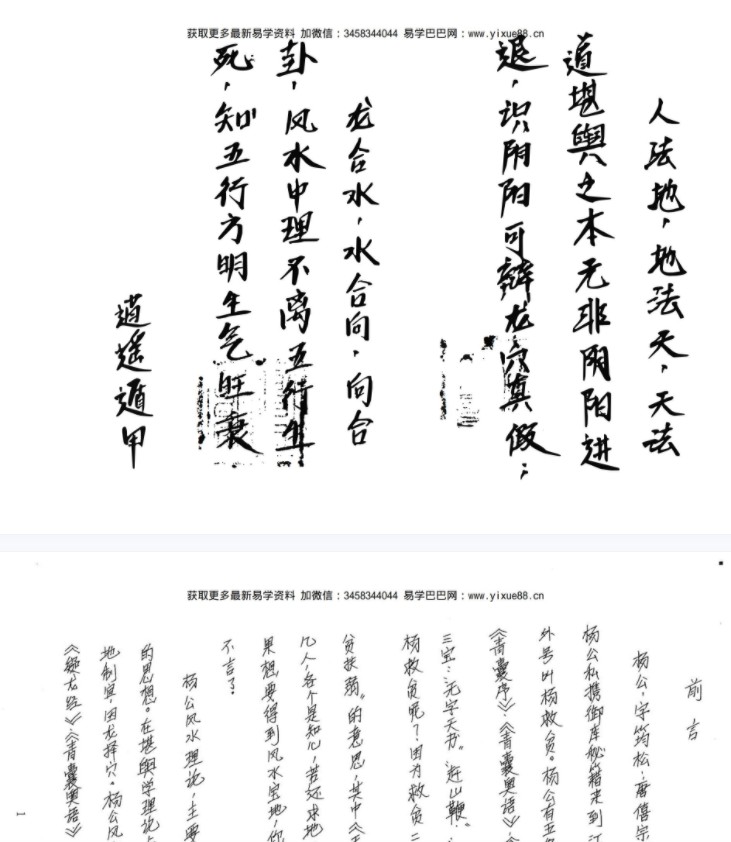 获取更多最新易学资料 加微信：3458344044 易学巴巴网：www.yixue88.cn
人法地，地法天，天法
道堪舆之本无非阴阳进
退，识阴阳可辩龙穴真假；
龙合水，水合向，向合
卦，风水中理不离五行生
死，知五行方明生气旺衰
逍遥遁甲
获取更多最新易学资料 加微信：3458344044 易学巴巴网：www.yixue88.cn
前言
杨公，字筠松，唐僖宗
杨公私携御库秘籍来到江
外号叫杨救贫。杨公有五
《青囊序》.《青囊奥语》.
三宝：“无字天书”.“赶山鞭”.
杨救贫呢？因为救贫二
贫扶弱”的意思，其中《
几人，各个是知心，若还求地
果想要得到风水宝地，你
不言了。
杨公风水理论，主要
的思想。在堪舆学理论
地制宜，因龙择穴。杨公风
龙经》.《青囊奥语》
1